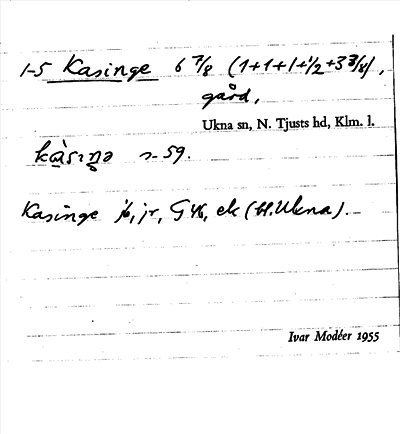 1-5 Kasinge 6 7/8 (1+1+1+1/2+3 3/8),
gård,
Ukna sn, N. Tjusts hd, Klm. l.
s. 59.
Kasinge jb, jr, G 46, ek (bl. Ukna).
Ivar Modéer 1955